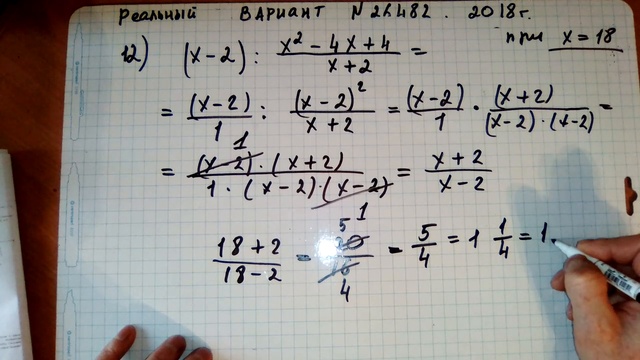 реальный ВАРИАНТ N 26482. 2018г.
12) (x-2) : \frac{x^2-4x+4}{x+2} = при x=18
= \frac{(x-2)}{1} : \frac{(x-2)^2}{x+2} = \frac{(x-2)}{1} · \frac{(x+2)}{(x-2)·(x-2)} =
= \frac{(x-2)·(x+2)}{1·(x-2)·(x-2)} = \frac{x+2}{x-2}
\frac{18+2}{18-2} = \frac{20}{16} = \frac{5}{4} = 1 \frac{1}{4} = 1,